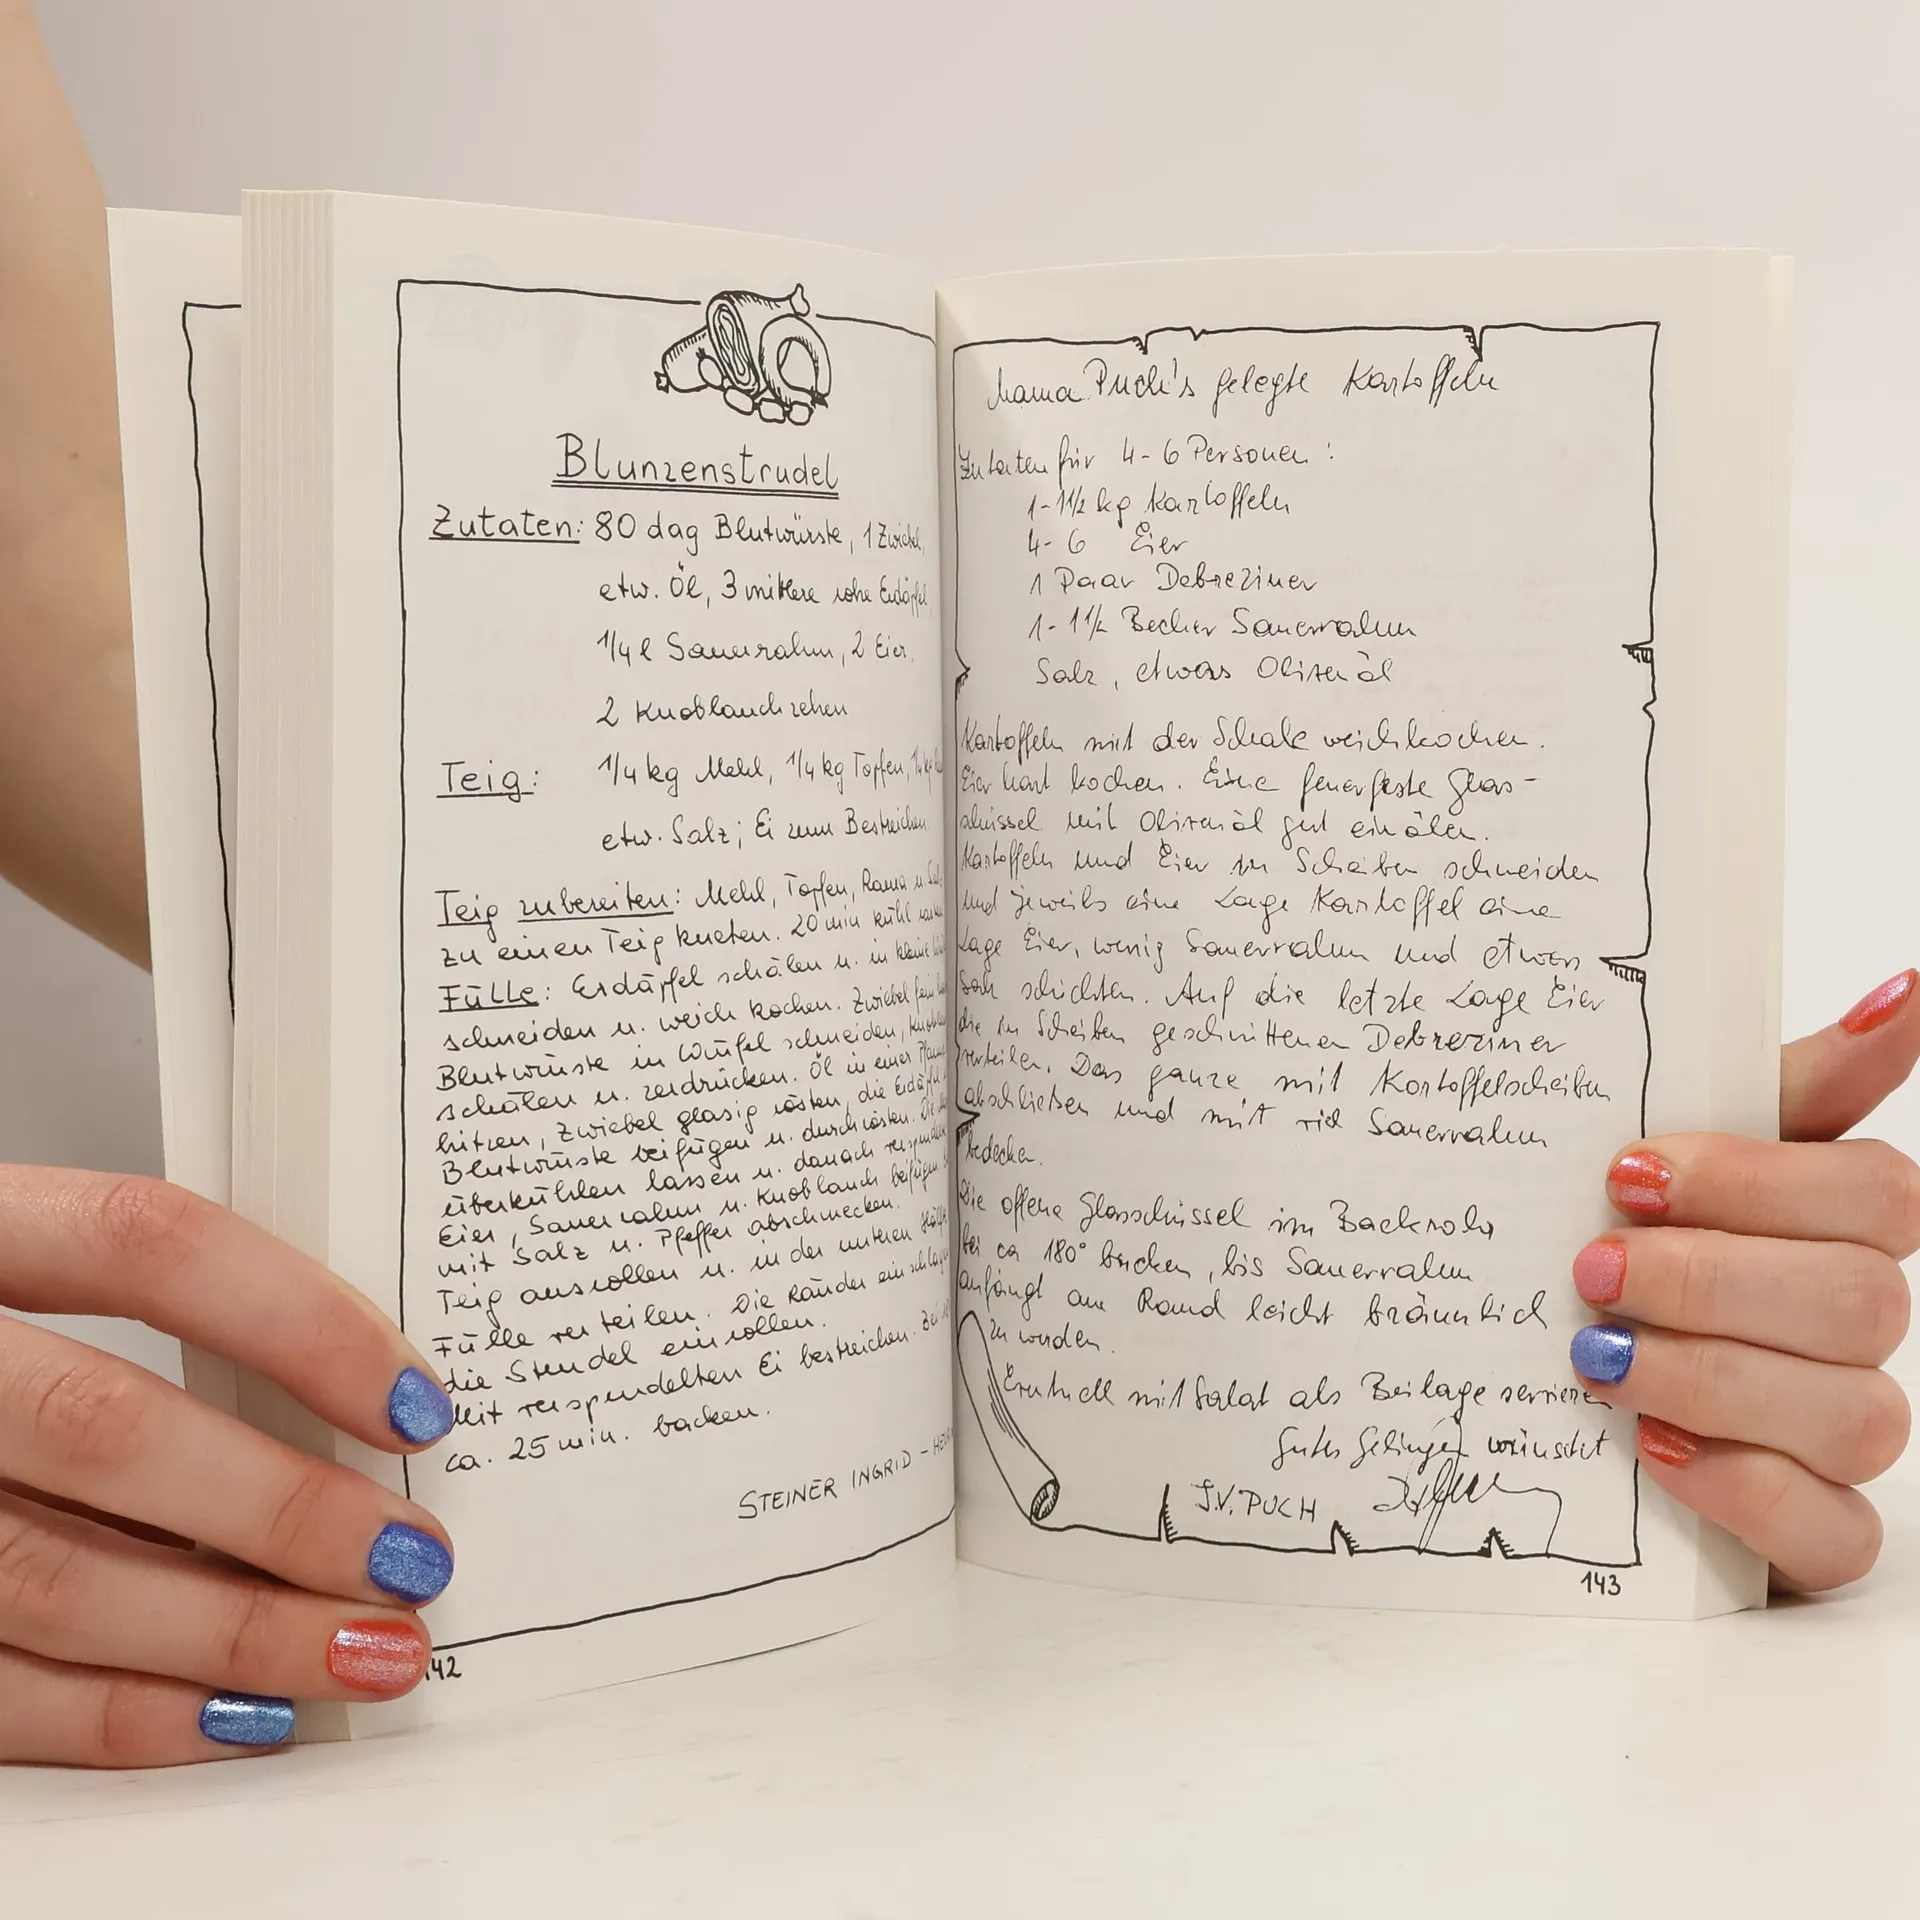 Blunzenstrudel
Zutaten: 80 dag Blutwürste, 1 Zwiebel,
etw. Öl, 3 mittlere rohe Erdäpfel,
1/4 l Sauerrahm, 2 Eier,
2 Knoblauchzehen
Teig: 1/4 kg Mehl, 1/4 kg Topfen, 1/4 kg
etw. Salz; Ei zum Bestreichen
Teig zubereiten: Mehl, Topfen, Rama u. Salz
zu einen Teig kneten. 20 min kühl rasten
Fülle: Erdäpfel schälen u. in kleine
schneiden u. weich kochen. Zwiebel fein
Blutwürste in Würfel schneiden, Knoblauch
schälen u. zerdrücken. Öl in einer Pfanne
hitzen, Zwiebel glasig rösten, die Erdäpfel
Blutwürste beifügen u. durchrösten. Die
überkühlen lassen u. danach versprudelte
Eier, Sauerrahm u. Knoblauch beifügen
mit Salz u. Pfeffer abschmecken.
Teig ausrollen u. in der unteren Hälfte
Fülle verteilen. Die Ränder einschlagen
die Strudel einrollen.
Mit versprudelten Ei bestreichen. Bei
ca. 25 min. backen.
STEINER INGRID -
142
Mama Puch's gelegte Kartoffeln
Zutaten für 4-6 Personen:
1-1 1/2 kg Kartoffeln
4-6 Eier
1 Paar Debreziner
1-1 1/2 Becher Sauerrahm
Salz, etwas Olivenöl
Kartoffeln mit der Schale weichkochen.
Eier hart kochen. Eine feuerfeste Glas-
schüssel mit Olivenöl gut einölen.
Kartoffeln und Eier in Scheiben schneiden
und jeweils eine Lage Kartoffel eine
Lage Eier, wenig Sauerrahm und etwas
Salz schichten. Auf die letzte Lage Eier
die in Scheiben geschnittenen Debreziner
verteilen. Das ganze mit Kartoffelscheiben
abschließen und mit viel Sauerrahm
bedecken.
Die offene Glasschüssel im Backrohr
bei ca 180° backen, bis Sauerrahm
anfängt am Rand leicht bräunlich
zu werden.
Eventuell mit Salat als Beilage servieren
Gutes Gelingen wünscht
J.V. PUCH
143